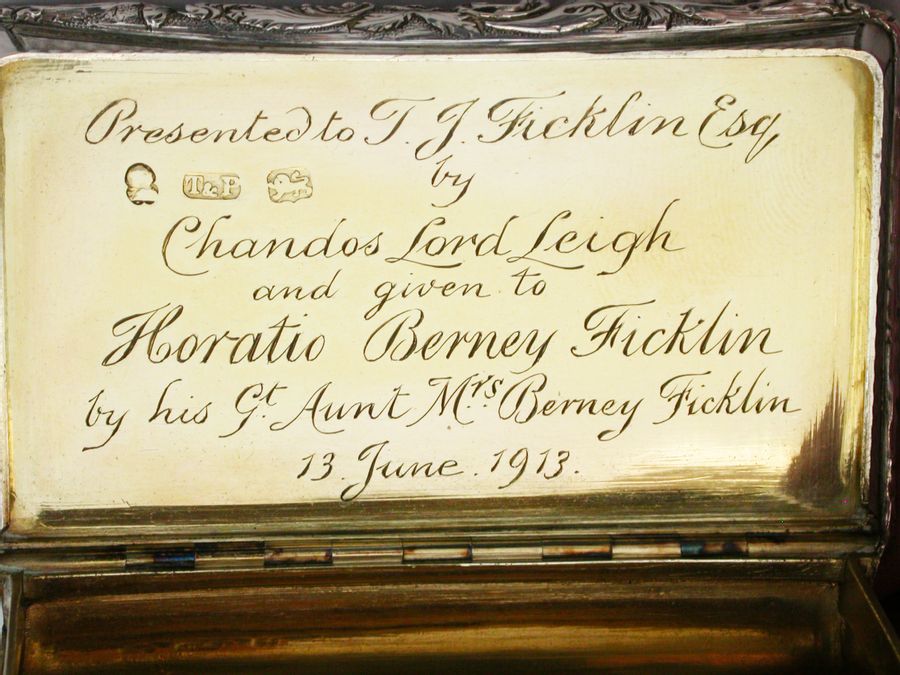 Presented to T. J. Ficklin Esq,
T&P
by
Chandos Lord Leigh
and given to
Horatio Berney Ficklin
by his Gt. Aunt Mrs. Berney Ficklin
13 June. 1913.